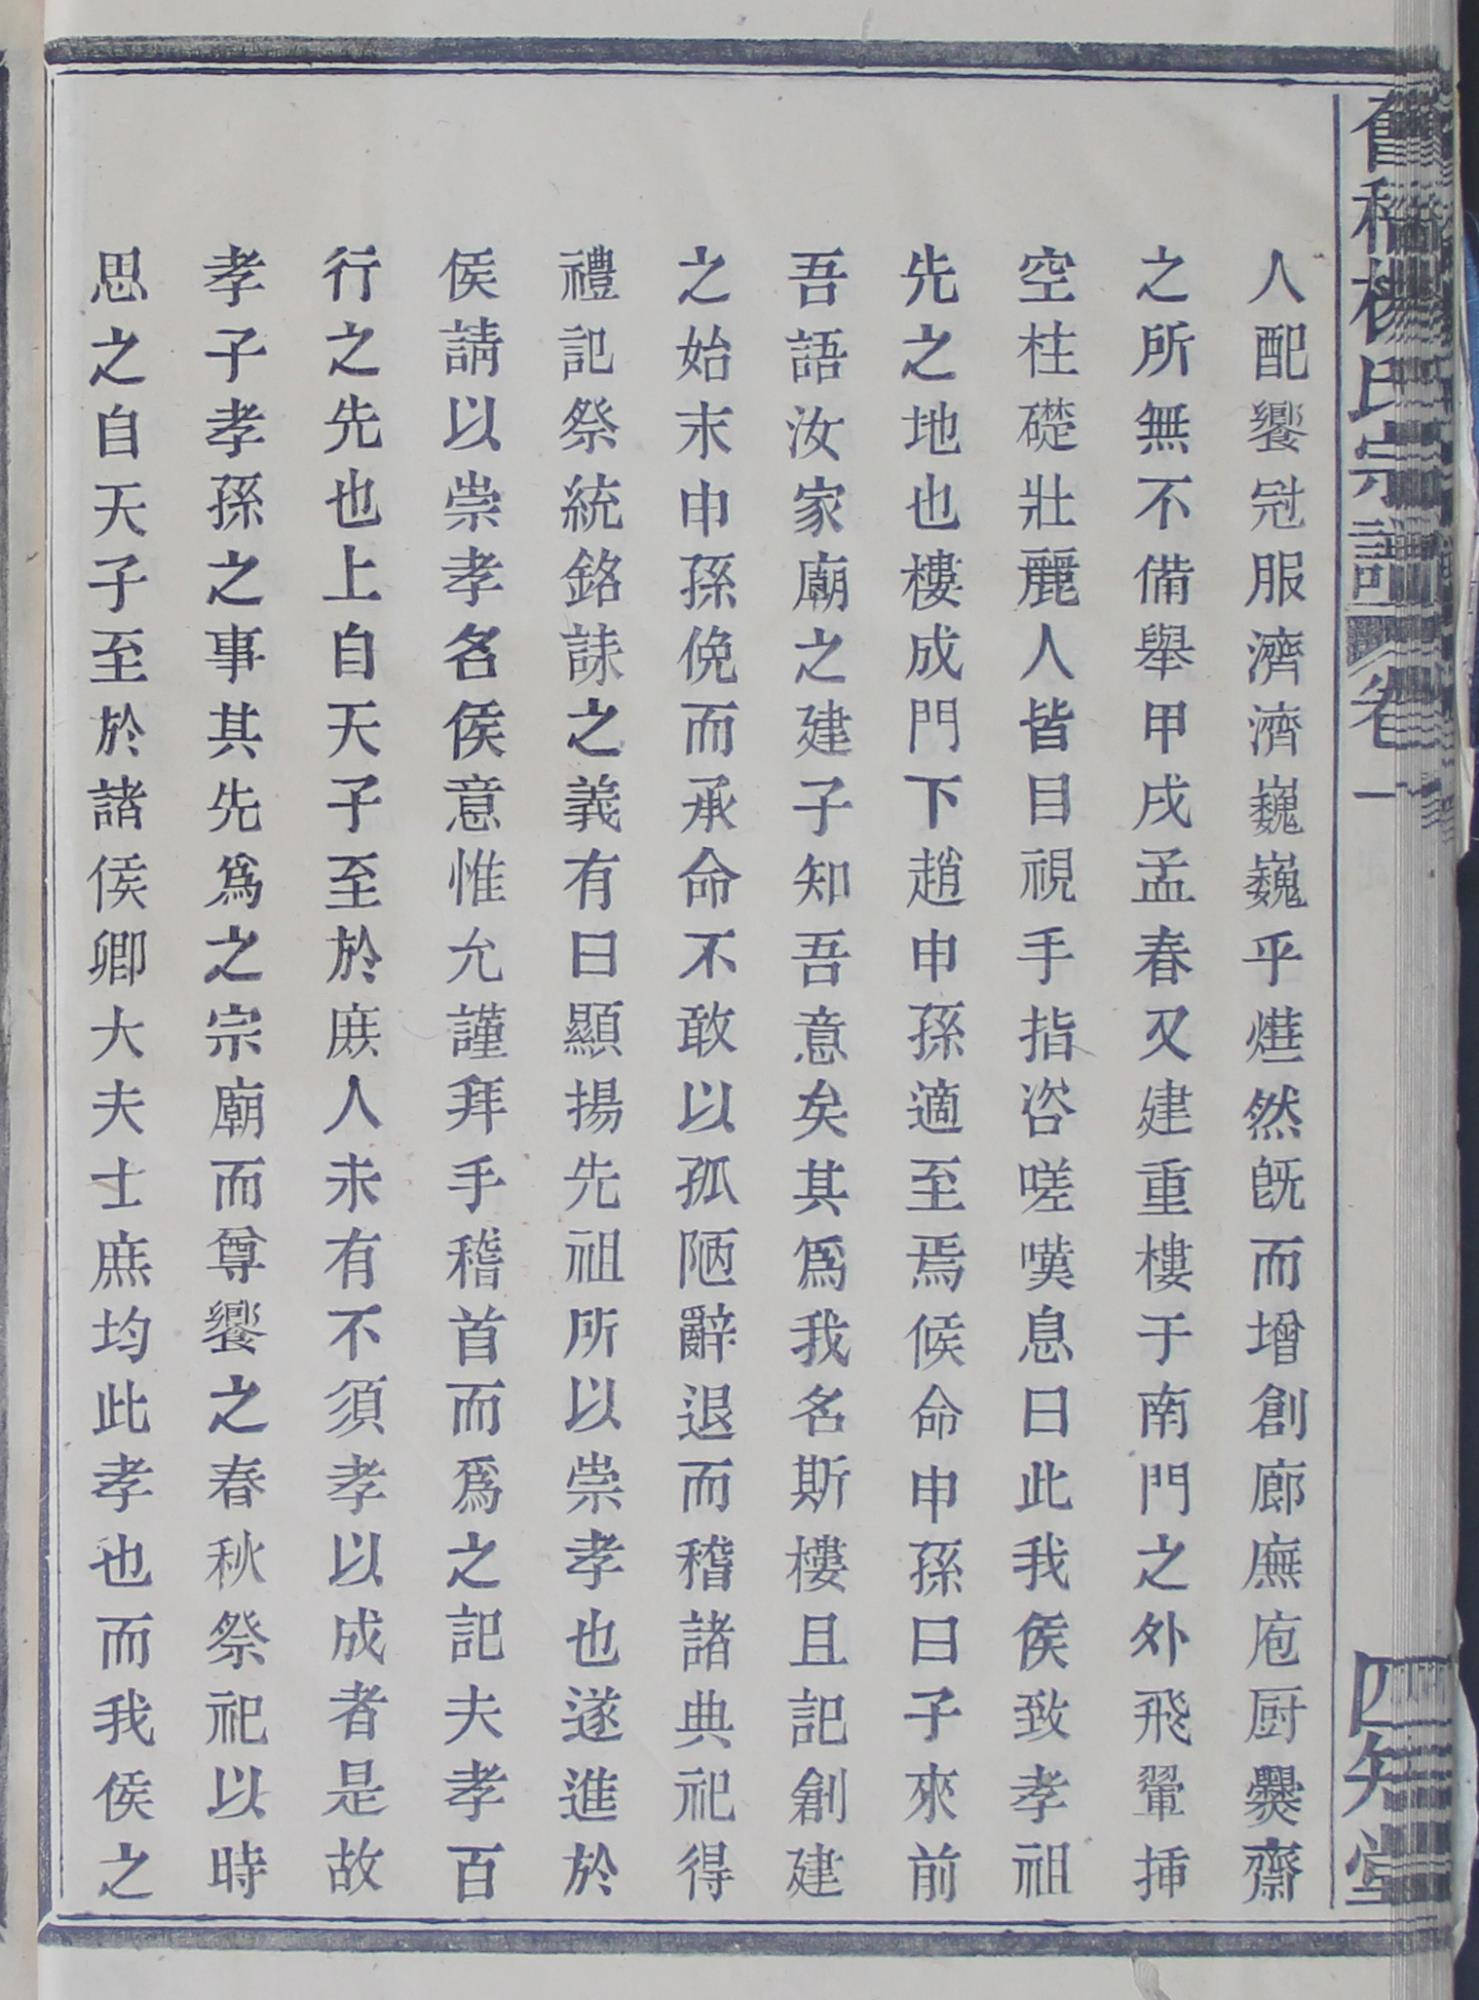 舊稱楊氏宗譜 卷一 四知堂
人配饗冠服濟濟巍巍乎爗然既而增創廊廡庖厨爨齋
之所無不備舉甲戌孟春又建重樓于南門之外飛翬挿
空柱礎壯麗人皆目視手指咨嗟嘆息曰此我侯致孝祖
先之地也樓成門下趙申孫適至焉候命申孫曰子來前
吾語汝家廟之建子知吾意矣其爲我名斯樓且記創建
之始末申孫俛而承命不敢以孤陋辭退而稽諸典祀得
禮記祭統銘誄之義有曰顯揚先祖所以崇孝也遂進於
侯請以崇孝名侯意惟允謹拜手稽首而爲之記夫孝百
行之先也上自天子至於庶人未有不須孝以成者是故
孝子孝孫之事其先爲之宗廟而尊饗之春秋祭祀以時
思之自天子至於諸侯卿大夫士庶均此孝也而我侯之